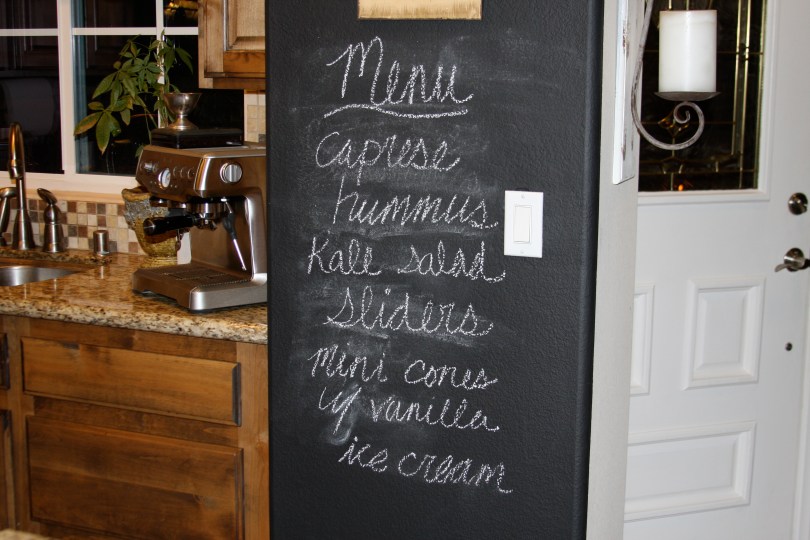 Menu
Caprese
hummus
Kale salad
Sliders
mini cones
w/ vanilla
ice cream